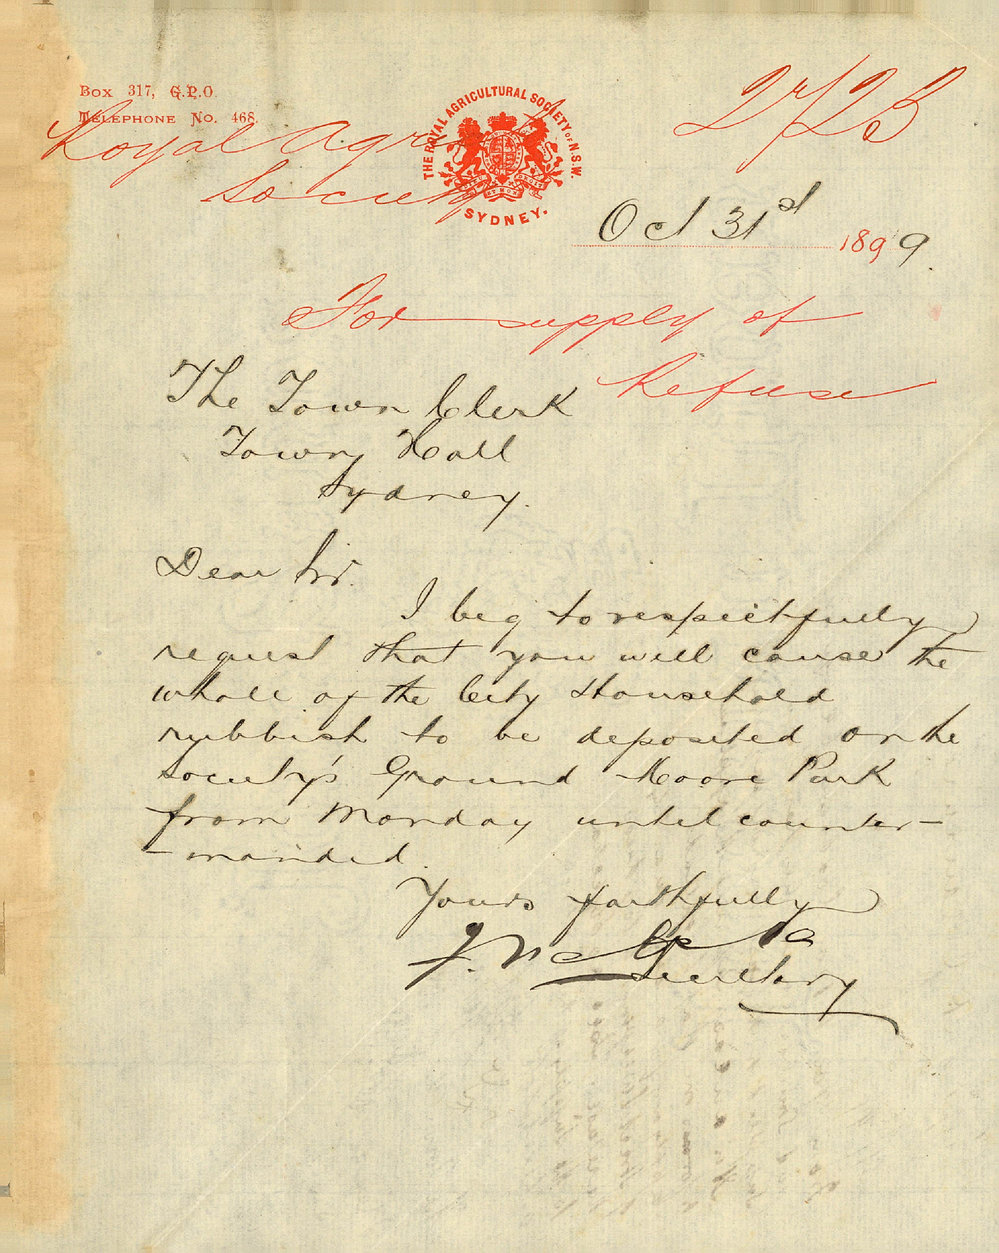 Box 317, G.P.O.
Telephone No. 468.
THE ROYAL AGRICULTURAL SOCIETY OF N.S.W.
SYDNEY.
Royal Agric
Society
Oct 31st 1899.
For supply of
Refuse
The Town Clerk
Town Hall
Sydney.
Dear Sir.
I beg to respectfully
request that you will cause the
whole of the City Household
rubbish to be deposited on the
Society's Ground Moore Park
from Monday until counter-
-manded.
Yours faithfully
Secretary